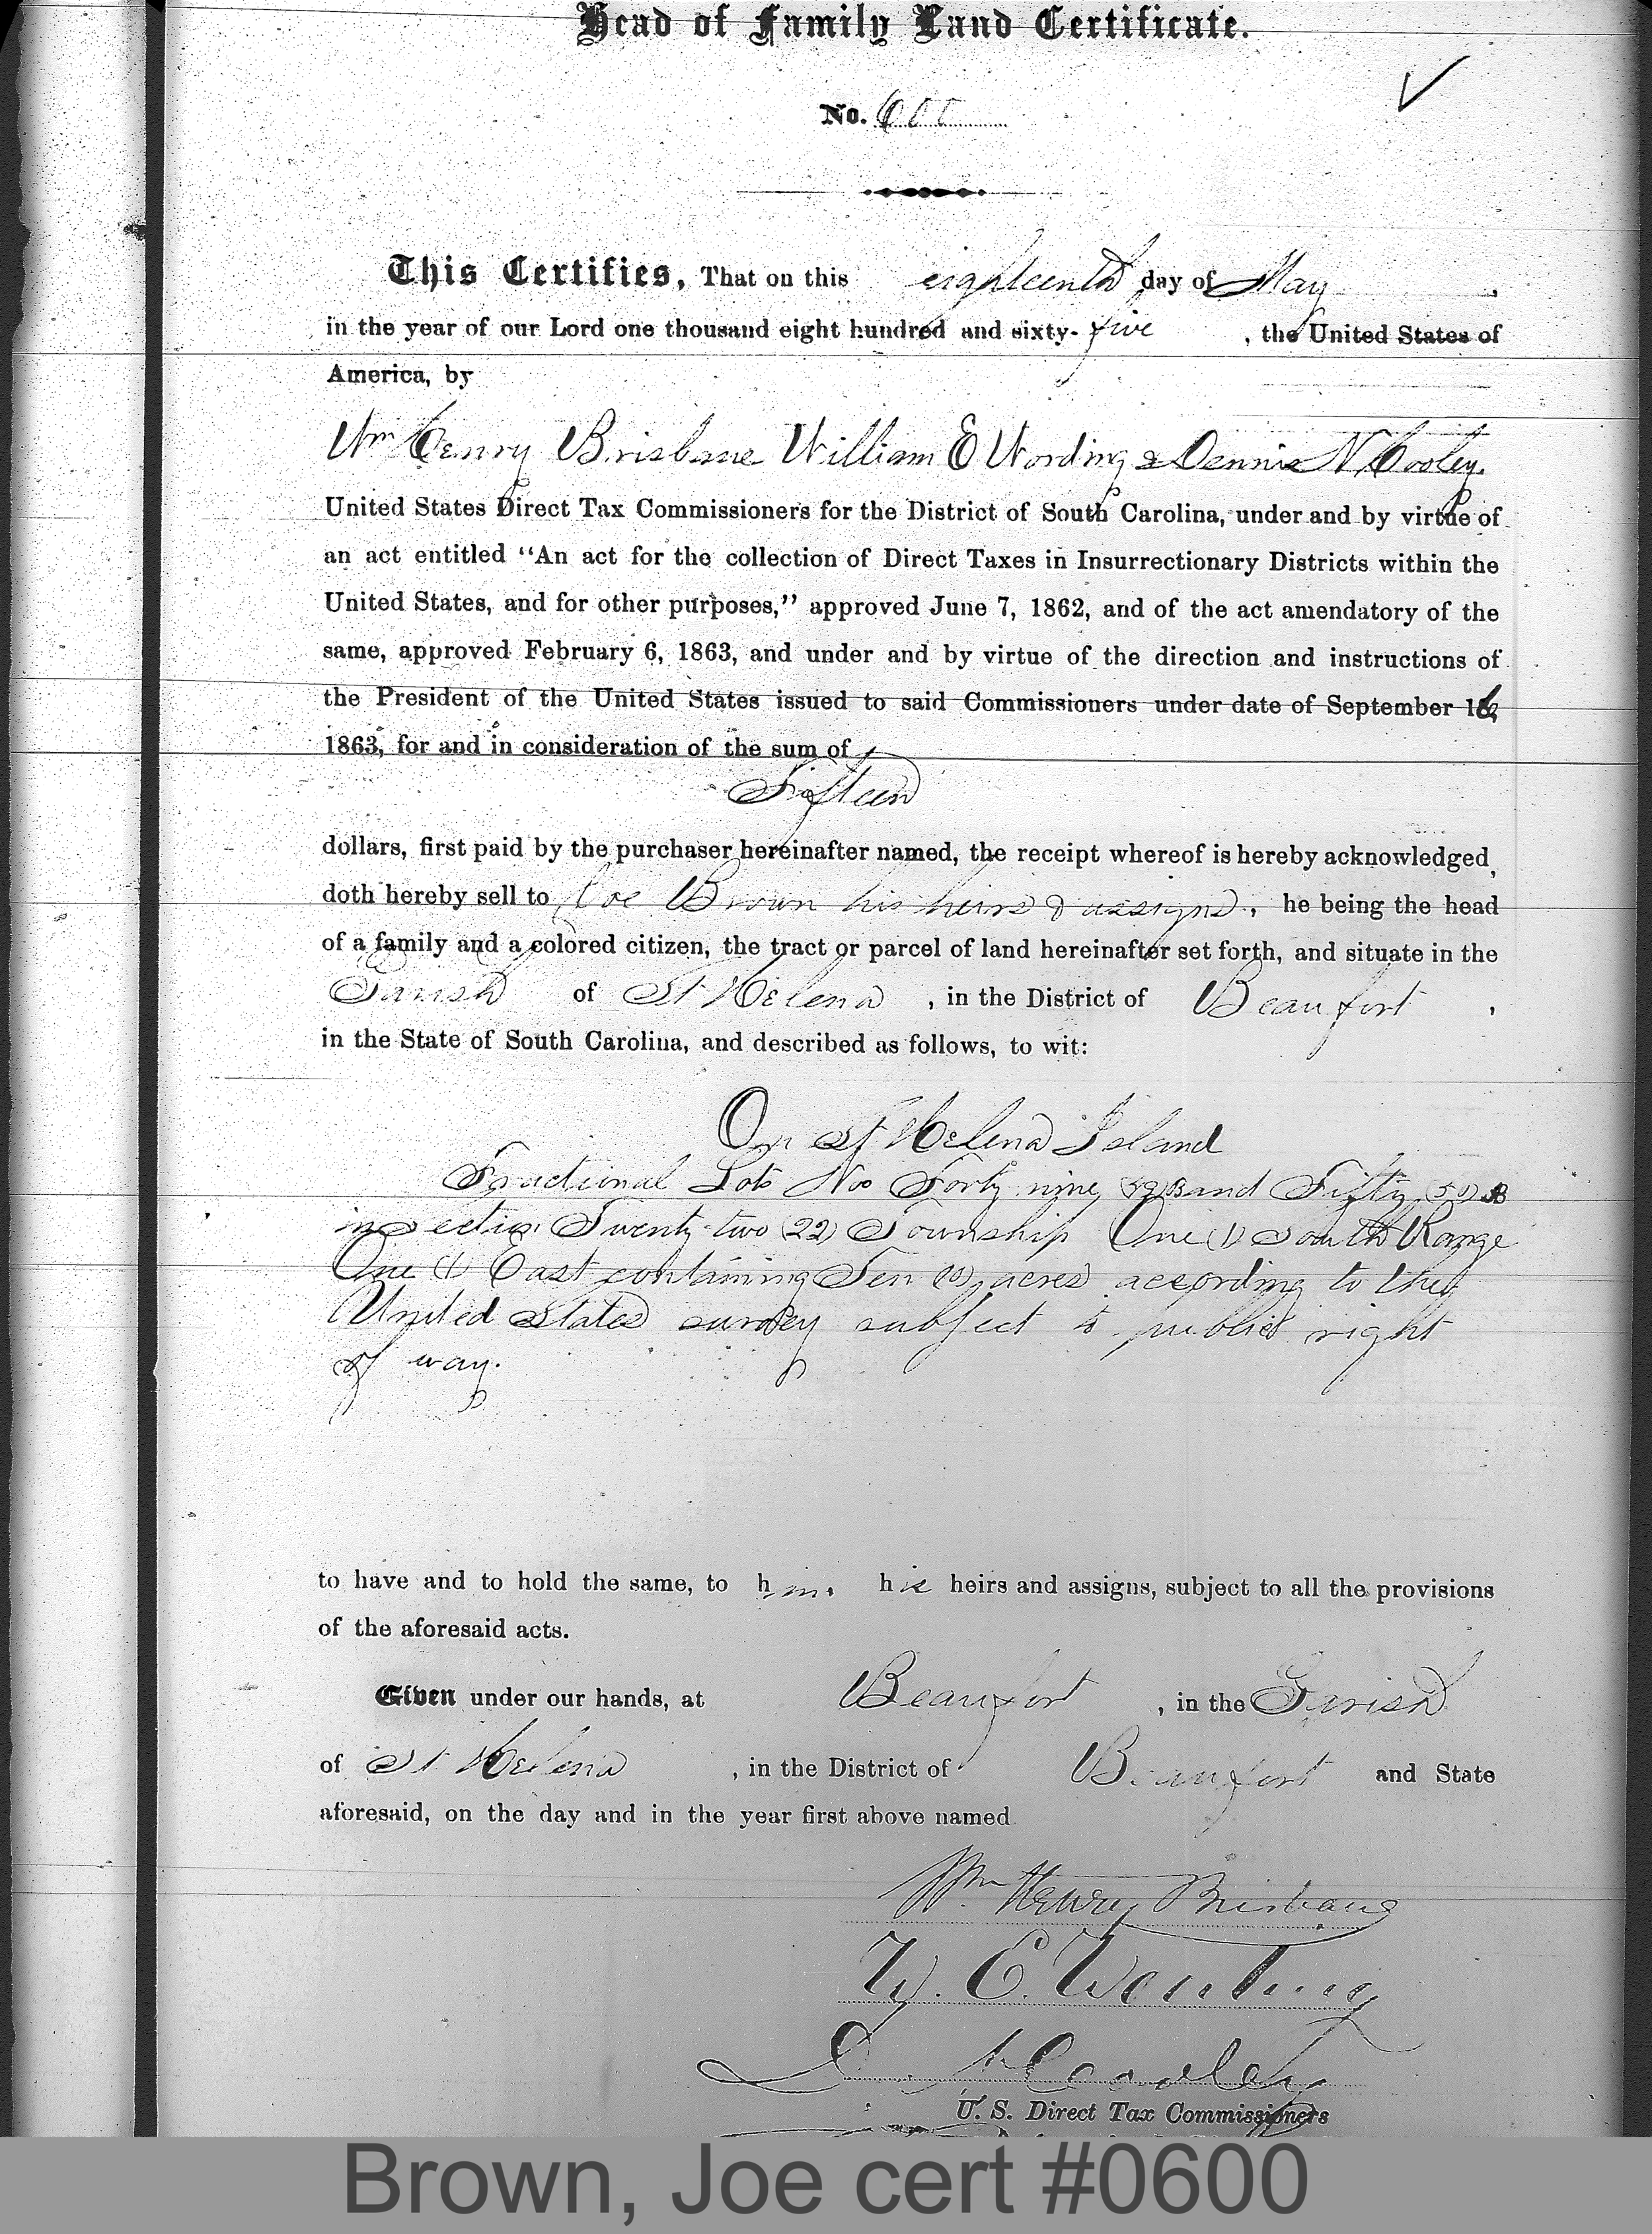 Head of Family Land Certificate.
No. 600
This Certifies, That on this eighteenth day of May,
in the year of our Lord one thousand eight hundred and sixty-five, the United States of
America, by
Wm Henry Brisbane William E Wording & Dennis N Cooley.
United States Direct Tax Commissioners for the District of South Carolina, under and by virtue of
an act entitled "An act for the collection of Direct Taxes in Insurrectionary Districts within the
United States, and for other purposes," approved June 7, 1862, and of the act amendatory of the
same, approved February 6, 1863, and under and by virtue of the direction and instructions of
the President of the United States issued to said Commissioners under date of September 16,
1863, for and in consideration of the sum of
Fifteen
dollars, first paid by the purchaser hereinafter named, the receipt whereof is hereby acknowledged,
doth hereby sell to Joe Brown his heirs & assigns, he being the head
of a family and a colored citizen, the tract or parcel of land hereinafter set forth, and situate in the
Parish of St Helena, in the District of Beaufort,
in the State of South Carolina, and described as follows, to wit:
On St Helena Island
Fractional Lots Nos Forty nine (49) B and Fifty (50) B
in Section Twenty-two (22) Township One (1) South Range
One (1) East containing Ten (10) acres according to the
United States survey subject to public right
of way.
to have and to hold the same, to him, his heirs and assigns, subject to all the provisions
of the aforesaid acts.
Given under our hands, at Beaufort, in the Parish
of St Helena, in the District of Beaufort and State
aforesaid, on the day and in the year first above named
Wm Henry Brisbane
W. E. Wording
D. N. Cooley
U. S. Direct Tax Commissioners
Brown, Joe cert #0600